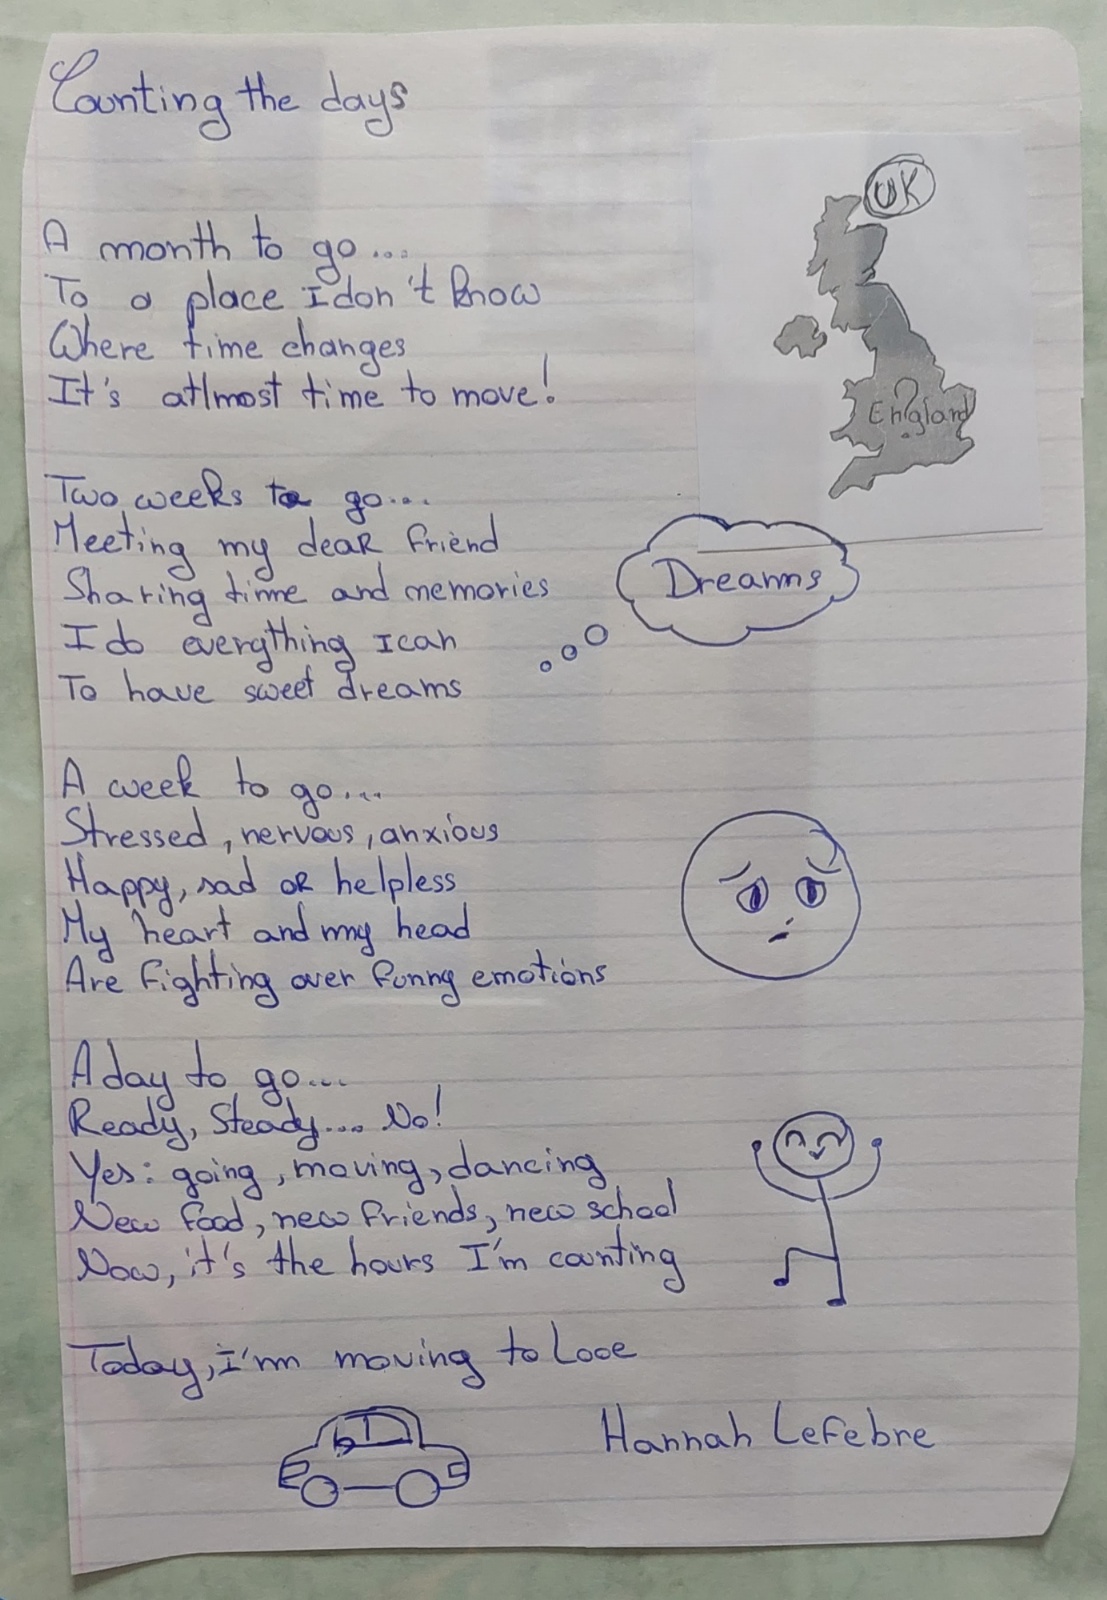 Counting the days
UK
England
?
A month to go...
To a place I don't know
Where time changes
It's atlmost time to move!
Two weeks to go...
Meeting my dear friend
Sharing time and memories
I do everything I can
To have sweet dreams
Dreams
A week to go...
Stressed, nervous, anxious
Happy, sad or helpless
My heart and my head
Are fighting over funny emotions
A day to go...
Ready, Steady.... No!
Yes: going, moving, dancing
New food, new friends, new school
Now, it's the hours I'm counting
Today, i'm moving to Looe
Hannah Lefebre